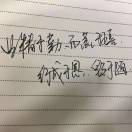 业精于勤.荒于嬉
行成于思..毁于随